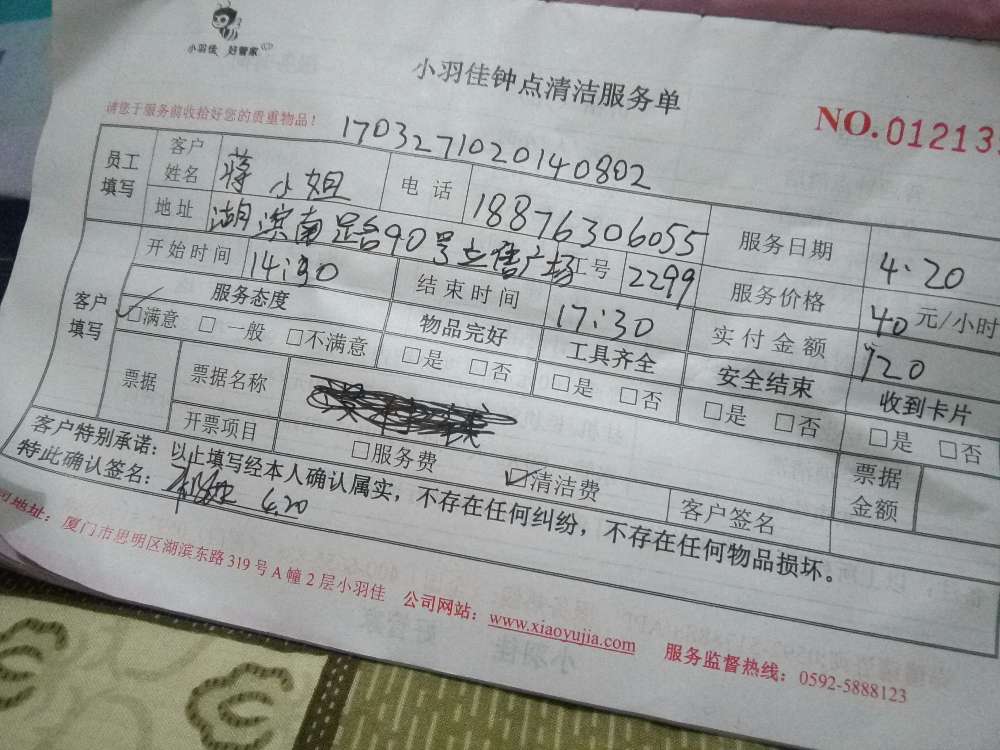 小羽佳 好管家
小羽佳钟点清洁服务单
请您于服务前收拾好您的贵重物品！
NO.01213
1703271020140802
员工填写 客户姓名 蒋小姐 电话 18876306055 服务日期 4.20
地址 湖滨南路90号立信广场 工号 2299 服务价格 40元/小时
客户填写 开始时间 14:30 结束时间 17:30 实付金额 120
服务态度 物品完好 工具齐全 安全结束 收到卡片
☑满意 □一般 □不满意 □是 □否 □是 □否 □是 □否 □是 □否
票据 票据名称 票据金额
开票项目 □服务费 ☑清洁费 客户签名
客户特别承诺：以上填写经本人确认属实，不存在任何纠纷，不存在任何物品损坏。
特此确认签名： 4.20
司地址：厦门市思明区湖滨东路319号A幢2层小羽佳 公司网站：www.xiaoyujia.com 服务监督热线：0592-5888123